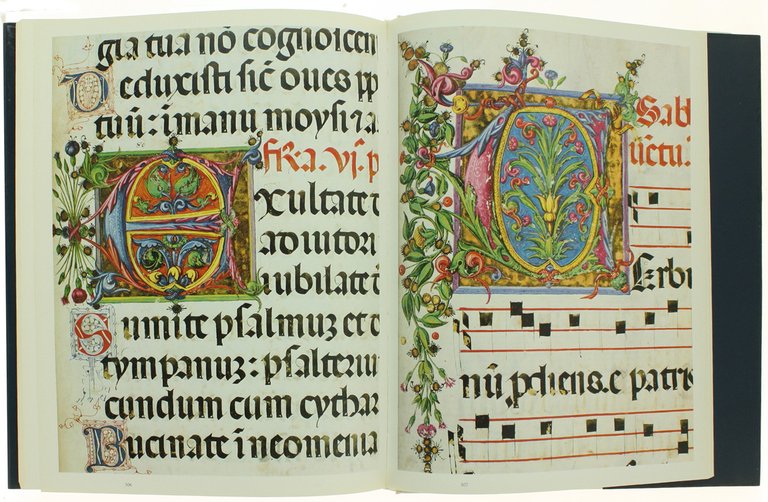 gia tua nō cognoscen
Deduxisti sic̄ oues pp
tuū: ī manu moysi ⁊ a
FRA. VI. p
Exultate d
adiutori
iubilate d
Sumite psalmuz et d
tympanuz: psalteriu
cundum cum cythar
Bucinate ī neomenia
Sabb
Verbu
nū pdiens. e patris